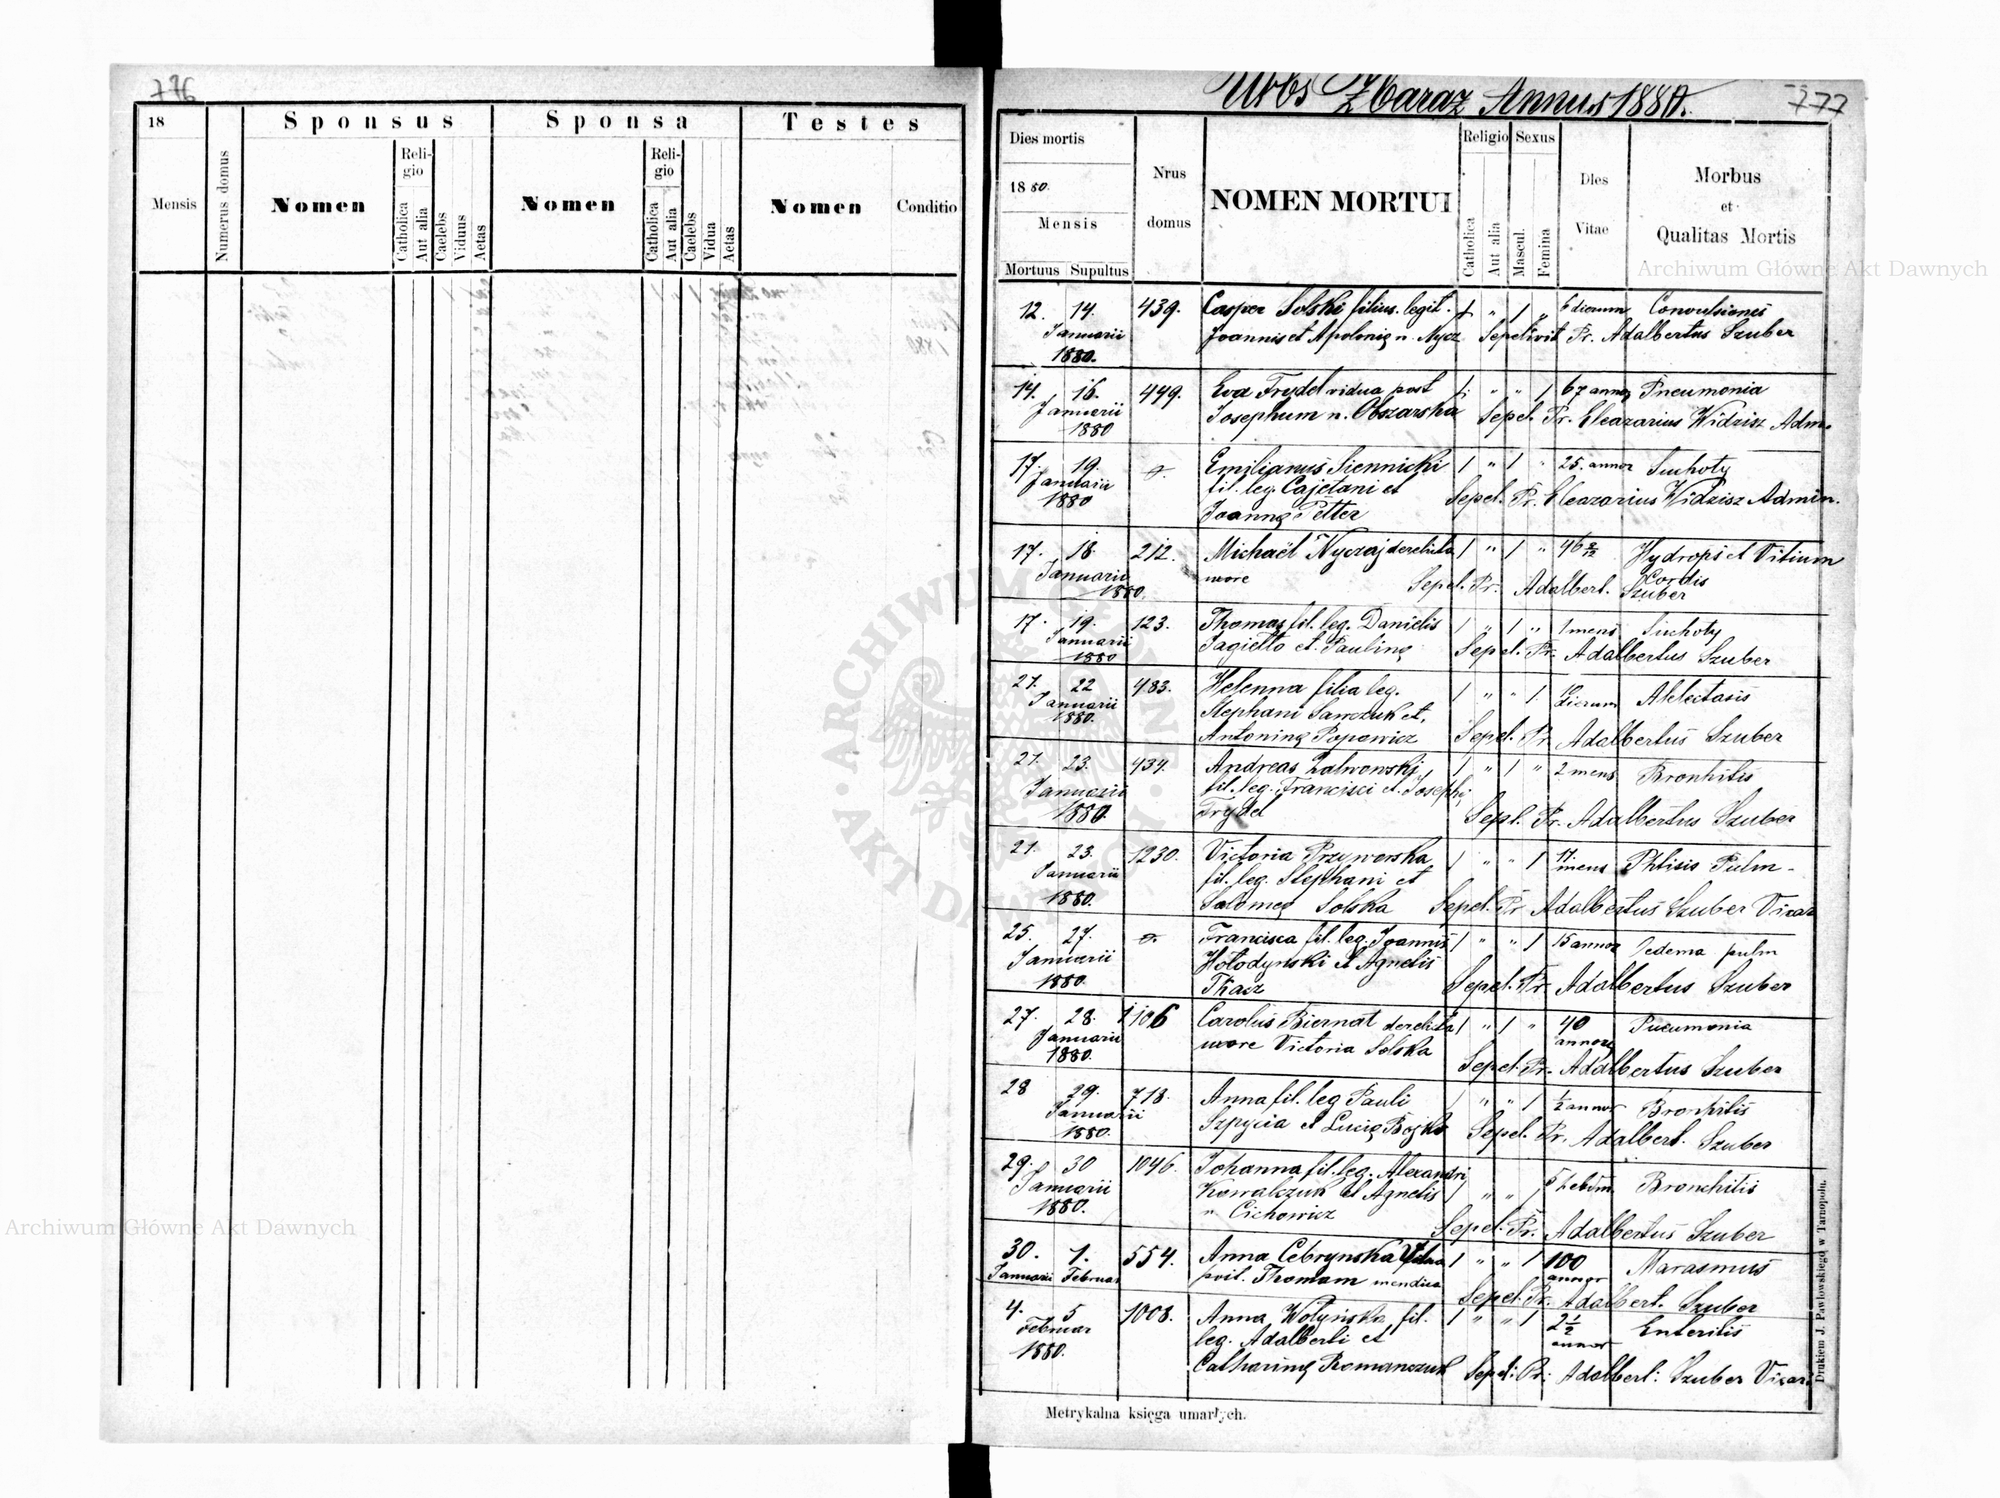 776
18
Mensis
Numerus domus
Sponsus
Nomen
Religio
Catholica
Aut alia
Caelebs
Viduus
Aetas
Sponsa
Nomen
Religio
Catholica
Aut alia
Caelebs
Vidua
Aetas
Testes
Nomen
Conditio
Urbs Zbaraz Annus 1880.
777
Dies mortis
1880.
Mensis
Mortuus Supultus
Nrus
domus
NOMEN MORTUI
Religio
Catholica
Aut alia
Sexus
Mascul.
Femina
Dies
Vitae
Morbus
et
Qualitas Mortis
12. 14. 439. Casper Solski filius legit. 1 " 1 " 6 dierum Convulsiones
Januarii Joannis et Apolonię n. Nycz Sepelivit Pr. Adalbertus Szuber
1880.
14. 16. 499. Eva Frydel vidua post 1 " " 1 67 annor Pneumonia
Januarii Josephum n. Obszarska Sepel. Pr. Eleazarius Widzisz Adm.
1880
17. 19. Emilianus Siennicki 1 " 1 " 25. annor Suchoty
Januarii fil. leg. Cajetani et Sepel. Pr. Eleazarius Widzisz Admin.
1880 Joannę Petter
17. 18. 212. Michaël Nyczaj derelicta 1 " 1 " 46 Hydrops et Vitium
Januarii uxore Cordis
1880. Sepel. Pr. Adalbert. Szuber
17. 19. 123. Thomas fil. leg. Danielis 1 " 1 " 1 mens Suchoty
Januarii Jagiełło et Paulinę Sepel. Pr. Adalbertus Szuber
1880
21. 22 483. Helenna filia leg. 1 " " 1 dierum Atelectasis
Januarii Stephani Sawczuk et
1880. Antoninę Popowicz Sepel. Pr. Adalbertus Szuber
21. 23. 434. Andreas Zalwowski 1 " 1 " 2 mens Bronhitis
Januarii fil. leg. Francisci et Josephę
1880. Frydel Sepl. Pr. Adalbertus Szuber
21. 23. 1230. Victoria Przyworska 1 " " 1 11. mens Phtisis Pulm-
Januarii fil. leg. Stephani et
1880. Salomeę Solska Sepel. Pr Adalbertus Szuber Vicar
25. 27. Francisca fil. leg. Joannis 1 " " 1 15 annor Oedema pulm
Januarii Hołodynski et Agnetis
1880. Tkacz Sepel. Pr. Adalbertus Szuber
27. 28. 1106 Carolus Biernat derelicta 1 " 1 " 40 annor Pneumonia
Januarii uxore Victoria Solska
1880. Sepel. Pr. Adalbertus Szuber
28 29. 718. Anna fil. leg Pauli 1 " " 1 1/2 annor Bronhitis
Januarii Szpycia et Lucię Bojko Sepel. Pr. Adalbert. Szuber
1880.
29. 30 1046. Johanna fil. leg. Alexandri
Januarii Kowalczuk et Agnetis 1 " " 1 Bronchitis
1880. n Cichowicz Sepel. Pr. Adalbertus Szuber
30. 1. 554. Anna Cebrynska 1 " " 1 100 annor Marasmus
Januarii Februar Thomam mendica Sepel. Pr. Adalbert. Szuber
4. 5 1008. Anna Wołyńska fil. 1 " " 1 2 1/2 annor Enteritis
Februar leg. Adalberti et
1880. Catharinę Romanczuk Sepel: Pr: Adalbert: Szuber Vicar.
Metrykalna księga umarłych.
Drukiem J. Pawłowskiego w Tarnopolu.
Archiwum Główne Akt Dawnych
Archiwum Główne Akt Dawnych
ARCHIWUM GŁÓWNE AKT DAWNYCH